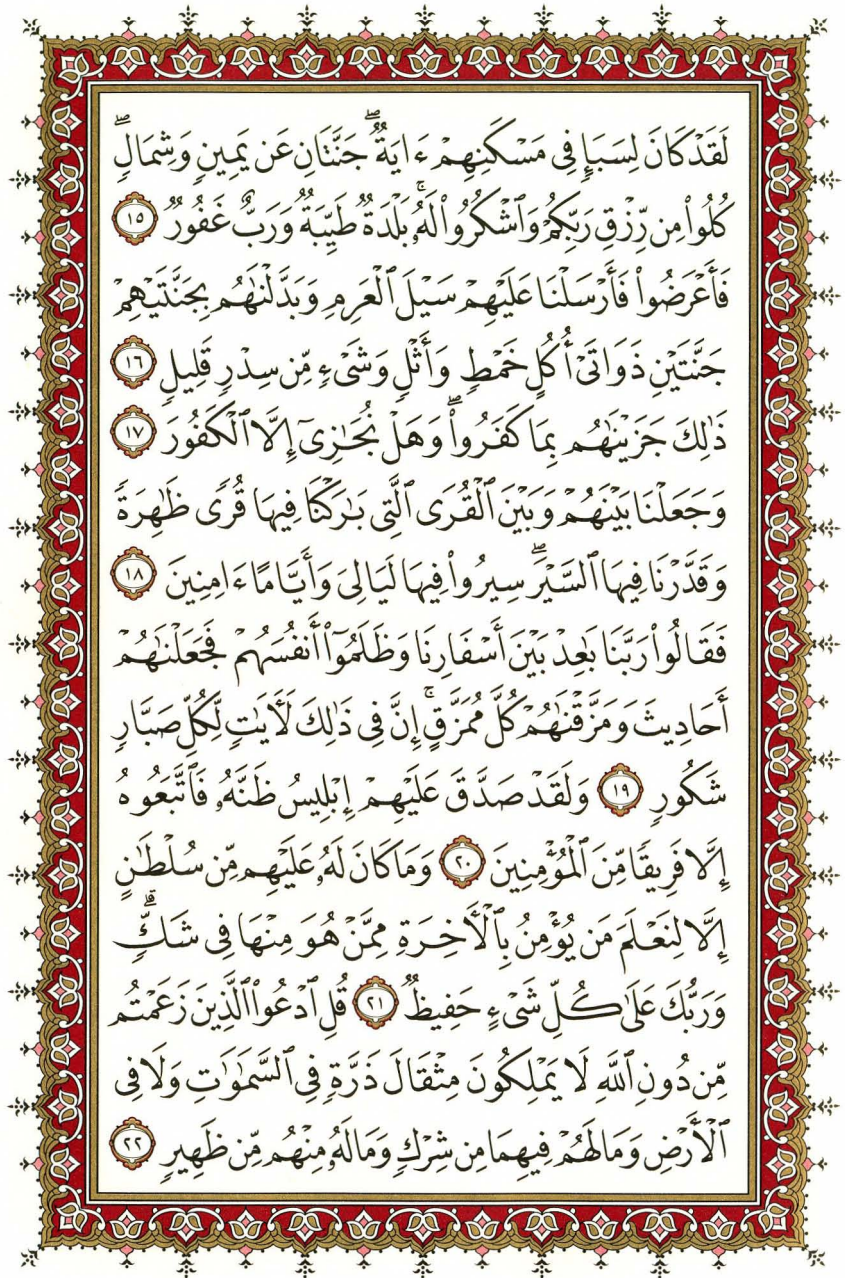 لَقَدْ كَانَ لِسَبَإٍ فِى مَسْكَنِهِمْ ءَايَةٌ ۖ جَنَّتَانِ عَن يَمِينٍ وَشِمَالٍ ۖ
كُلُوا۟ مِن رِّزْقِ رَبِّكُمْ وَٱشْكُرُوا۟ لَهُۥ ۚ بَلْدَةٌ طَيِّبَةٌ وَرَبٌّ غَفُورٌ ١٥
فَأَعْرَضُوا۟ فَأَرْسَلْنَا عَلَيْهِمْ سَيْلَ ٱلْعَرِمِ وَبَدَّلْنَٰهُم بِجَنَّتَيْهِمْ
جَنَّتَيْنِ ذَوَاتَىْ أُكُلٍ خَمْطٍ وَأَثْلٍ وَشَىْءٍ مِّن سِدْرٍ قَلِيلٍ ١٦
ذَٰلِكَ جَزَيْنَٰهُم بِمَا كَفَرُوا۟ ۖ وَهَلْ نُجَٰزِىٓ إِلَّا ٱلْكَفُورَ ١٧
وَجَعَلْنَا بَيْنَهُمْ وَبَيْنَ ٱلْقُرَى ٱلَّتِى بَٰرَكْنَا فِيهَا قُرًى ظَٰهِرَةً
وَقَدَّرْنَا فِيهَا ٱلسَّيْرَ ۖ سِيرُوا۟ فِيهَا لَيَالِىَ وَأَيَّامًا ءَامِنِينَ ١٨
فَقَالُوا۟ رَبَّنَا بَٰعِدْ بَيْنَ أَسْفَارِنَا وَظَلَمُوٓا۟ أَنفُسَهُمْ فَجَعَلْنَٰهُمْ
أَحَادِيثَ وَمَزَّقْنَٰهُمْ كُلَّ مُمَزَّقٍ ۚ إِنَّ فِى ذَٰلِكَ لَـَٔايَٰتٍ لِّكُلِّ صَبَّارٍ
شَكُورٍ ١٩ وَلَقَدْ صَدَّقَ عَلَيْهِمْ إِبْلِيسُ ظَنَّهُۥ فَٱتَّبَعُوهُ
إِلَّا فَرِيقًا مِّنَ ٱلْمُؤْمِنِينَ ٢٠ وَمَا كَانَ لَهُۥ عَلَيْهِم مِّن سُلْطَٰنٍ
إِلَّا لِنَعْلَمَ مَن يُؤْمِنُ بِٱلْـَٔاخِرَةِ مِمَّنْ هُوَ مِنْهَا فِى شَكٍّ ۗ
وَرَبُّكَ عَلَىٰ كُلِّ شَىْءٍ حَفِيظٌ ٢١ قُلِ ٱدْعُوا۟ ٱلَّذِينَ زَعَمْتُم
مِّن دُونِ ٱللَّهِ لَا يَمْلِكُونَ مِثْقَالَ ذَرَّةٍ فِى ٱلسَّمَٰوَٰتِ وَلَا فِى
ٱلْأَرْضِ وَمَا لَهُمْ فِيهِمَا مِن شِرْكٍ وَمَا لَهُۥ مِنْهُم مِّن ظَهِيرٍ ٢٢